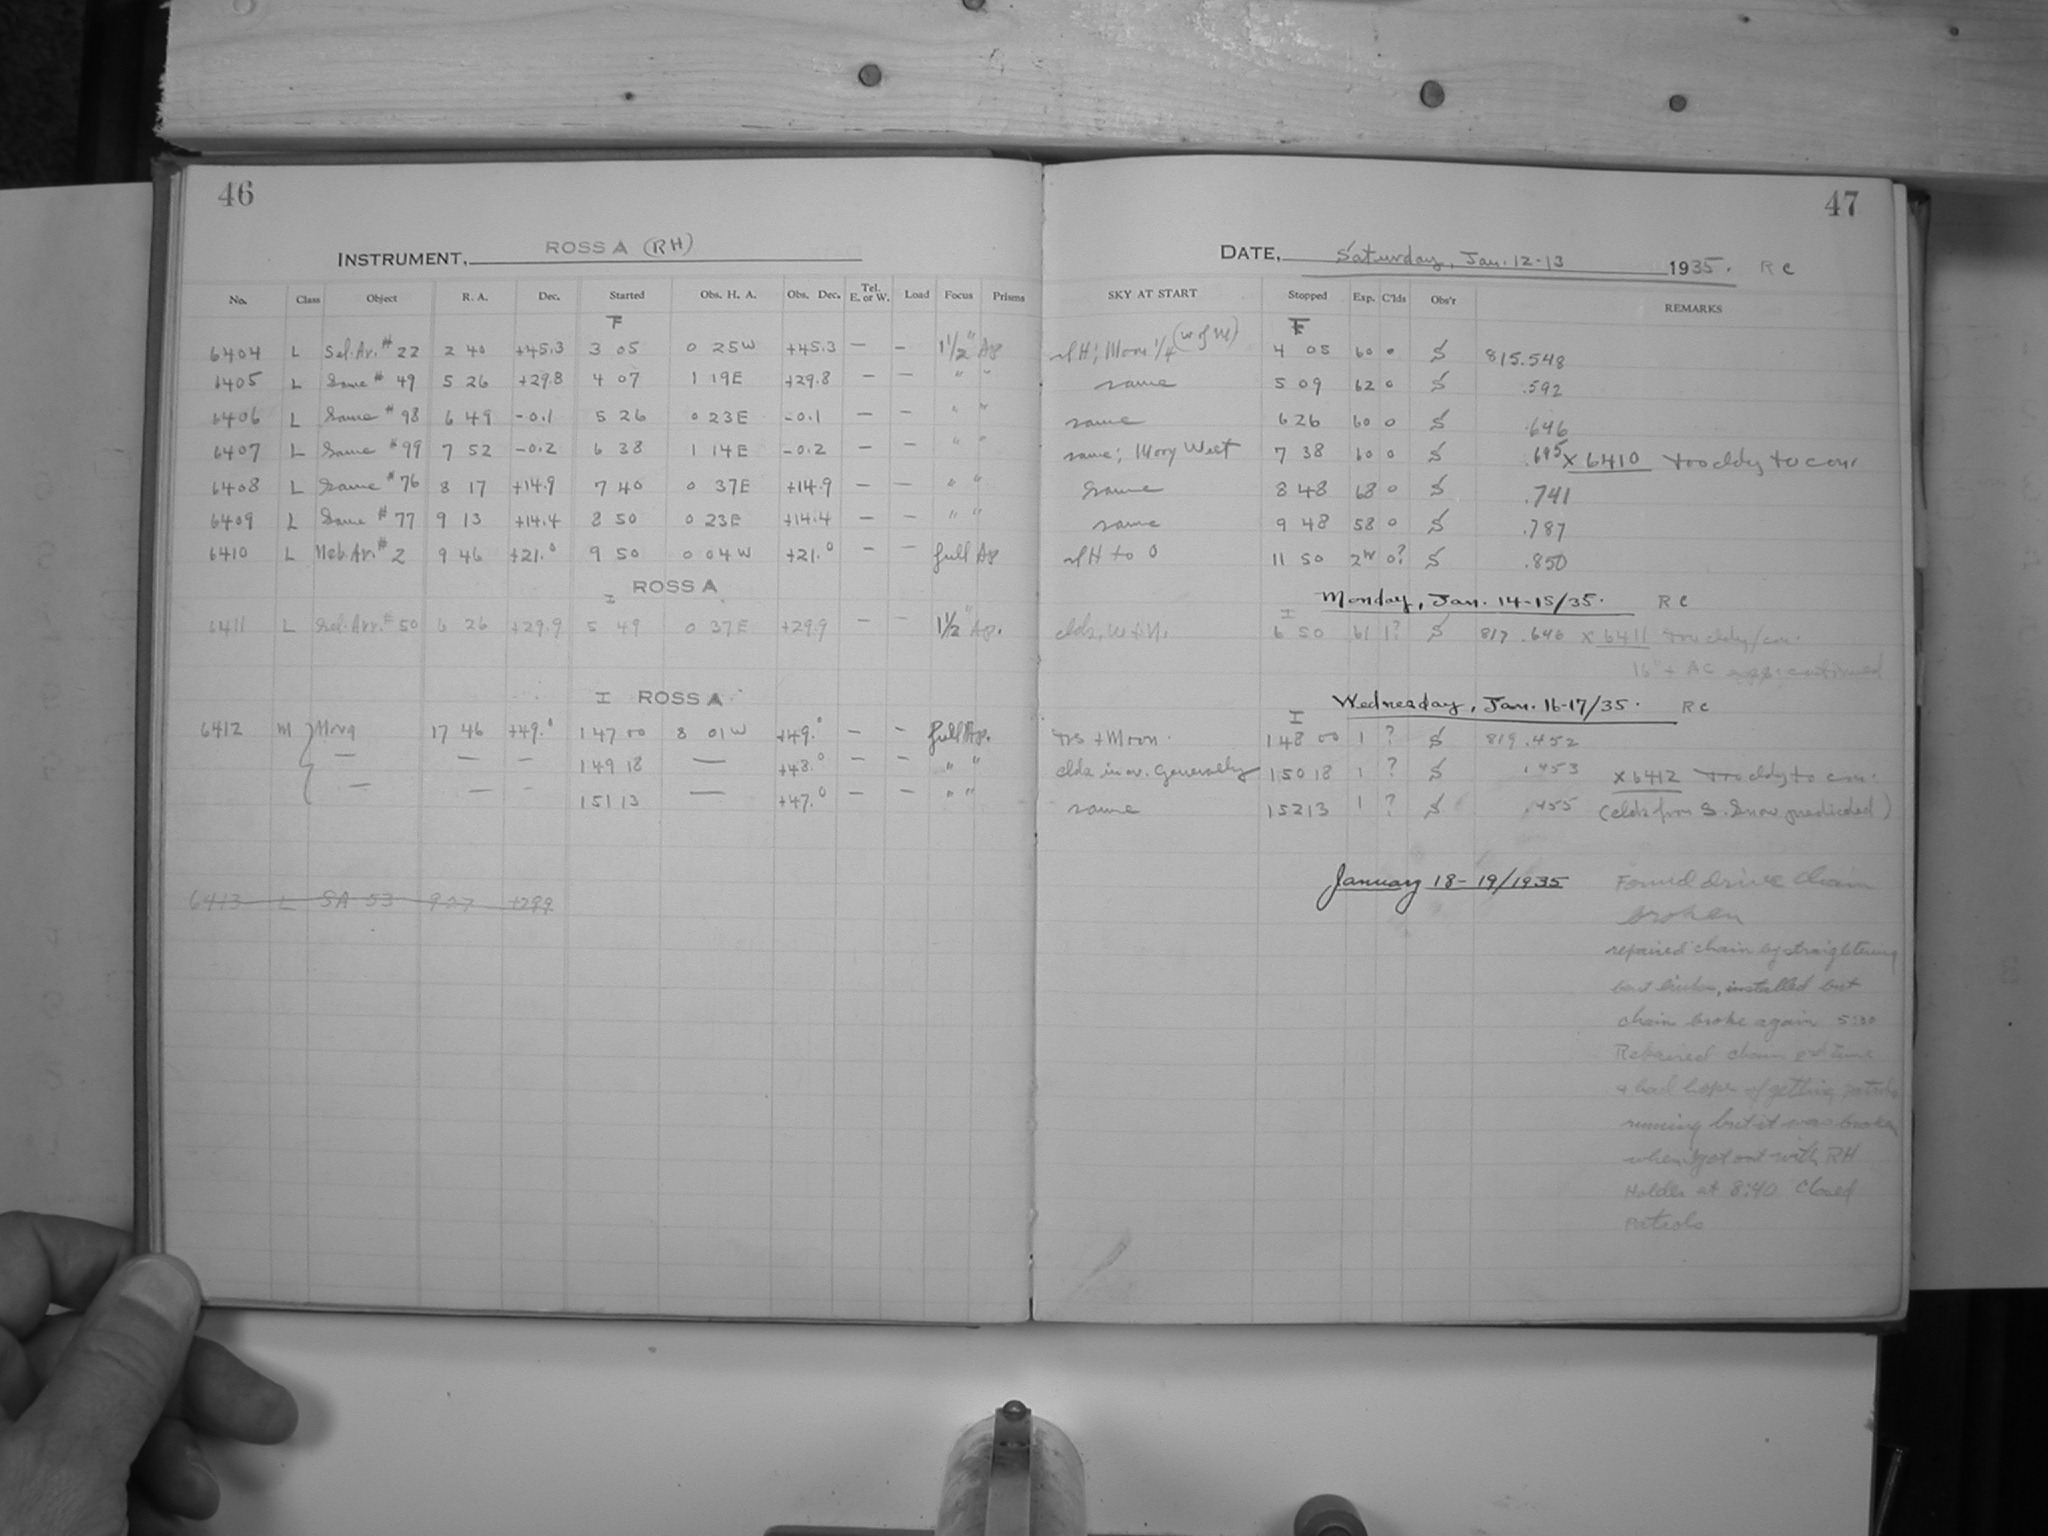 46
INSTRUMENT, ROSS A (RH)
No. Class Object R. A. Dec. Started Obs. H. A. Obs. Dec. Tel. E. or W. Load Focus Prisms
F
6404 L Sel. Ar. # 22 2 40 +45.3 3 05 0 25W +45.3 — — 1 1/2" Ap
6405 L Same # 49 5 26 +29.8 4 07 1 19E +29.8 — — " "
6406 L Same # 98 6 49 -0.1 5 26 0 23E -0.1 — — " "
6407 L Same # 99 7 52 -0.2 6 38 1 14E -0.2 — " "
6408 L Same # 76 8 17 +14.9 7 40 0 37E +14.9 — — " "
6409 L Same # 77 9 13 +14.4 8 50 0 23E +14.4 — — " "
6410 L Neb. Ar. # 2 9 46 +21.0 9 50 0 04W +21.0 — — full Ap
ROSS A
I
6411 L Sel. Arr. # 50 6 26 +29.9 5 49 0 37E +29.9 — — 1 1/2" Ap.
I ROSS A
6412 M Nova 17 46 +49.0 147 00 8 01W +49.0 — — full Ap.
— — — 149 18 — +48.0 — — " "
— — - 151 13 — +47.0 — — " "
6413 L SA 53 9 27 +299
47
DATE, Saturday, Jan. 12-13 1935. RC
SKY AT START Stopped Exp. C'lds Obs'r REMARKS
F
H; Moon 1/4 (W of M) 4 05 60 0 S 815.548
same 5 09 62 0 S .592
same 6 26 60 0 S .646
same; Moon West 7 38 60 0 S .695 X 6410 too cldy to con.
Same 8 48 68 0 S .741
same 9 48 58 0 S .787
H to 0 11 50 2H 0? S .850
Monday, Jan. 14-15/35. RC
I
clds, W + N. 6 50 61 1? S 817.646 X 6411 too cldy/con.
16" + AC continued
Wednesday, Jan. 16-17/35. RC
I
+ Moon. 148 00 1 ? S 819.452
clds in ov. Generally 150 18 1 ? S .453 X 6412 too cldy to con.
same 152 13 1 ? S .455 (clds from S. Snow predicted)
January 18-19/1935 Found drive chain
broken
repaired chain by straightening
bent links, installed but
chain broke again 5:30
Repaired chain
a had hopes of getting patrols
running but it was broken
when got out with RH
Holder at 8:40 Closed
Patrols